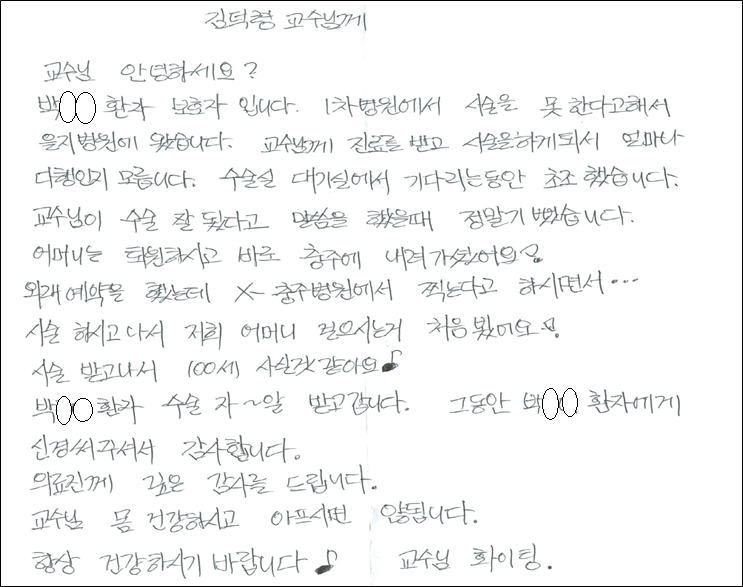 김덕령 교수님께
교수님 안녕하세요?
박○○ 환자 보호자 입니다. 1차병원에서 시술을 못 한다고해서
을지병원에 왔습니다. 교수님께 진료를 받고 시술을하게되서 얼마나
다행인지 모릅니다. 수술실 대기실에서 기다리는동안 초조 했습니다.
교수님이 수술 잘 됬다고 말씀을 했을때 정말기뻤습니다.
어머니는 퇴원하시고 바로 충주에 내려가셨어요!
외래예약을 했는데 X- 충주병원에서 찍는다고 하시면서...
시술 하시고나서 저희 어머니 걸으시는거 처음 봤어요!
시술 받고나서 100세 사실것 같아요♪
박○○환자 수술 자~알 받고갑니다. 그동안 박○○ 환자에게
신경써주셔서 감사합니다.
의료진께 깊은 감사를 드립니다.
교수님 몸 건강하시고 아프시면 않됩니다.
항상 건강하시기 바랍니다♪ 교수님 화이팅.